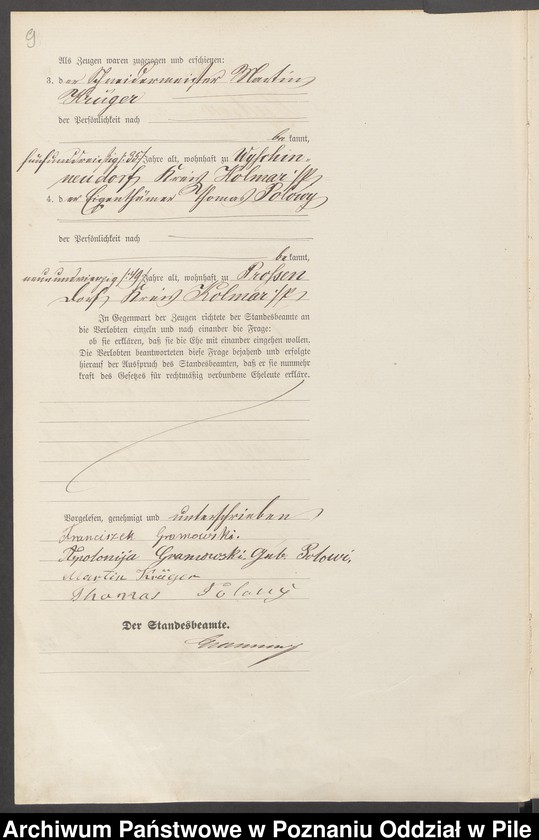 9
Als Zeugen waren zugezogen und erschienen:
3. der Schneidermeister Martin
Krüger
der Persönlichkeit nach
be kannt,
fünfunddreißig /:35:/ Jahre alt, wohnhaft zu Wyschin-
neudorf Kreis Kolmar i/P
4. der Eigenthümer Thomas Polowy
der Persönlichkeit nach
be kannt,
neunundvierzig /:49:/ Jahre alt, wohnhaft zu Prossen
dorf Kreis Kolmar i/P
In Gegenwart der Zeugen richtete der Standesbeamte an
die Verlobten einzeln und nach einander die Frage:
ob sie erklären, daß sie die Ehe mit einander eingehen wollen.
Die Verlobten beantworteten diese Frage bejahend und erfolgte
hierauf der Ausspruch des Standesbeamten, daß er sie nunmehr
kraft des Gesetzes für rechtmäßig verbundene Eheleute erkläre.
Vorgelesen, genehmigt und unterschrieben
Franciszek Gramowski.
Apolonija Gramowski Geb. Polowi,
Martin Krüger
Thomas Polowy
Der Standesbeamte.
Archiwum Państwowe w Poznaniu Oddział w Pile